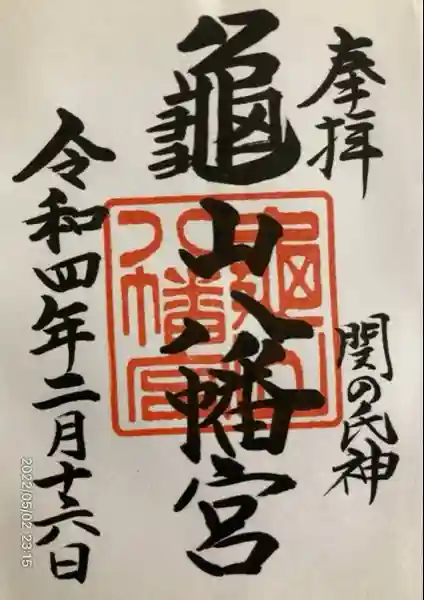 奉拝
関の氏神
龜山八幡宮
令和四年二月十六日
2022/05/02 23:15